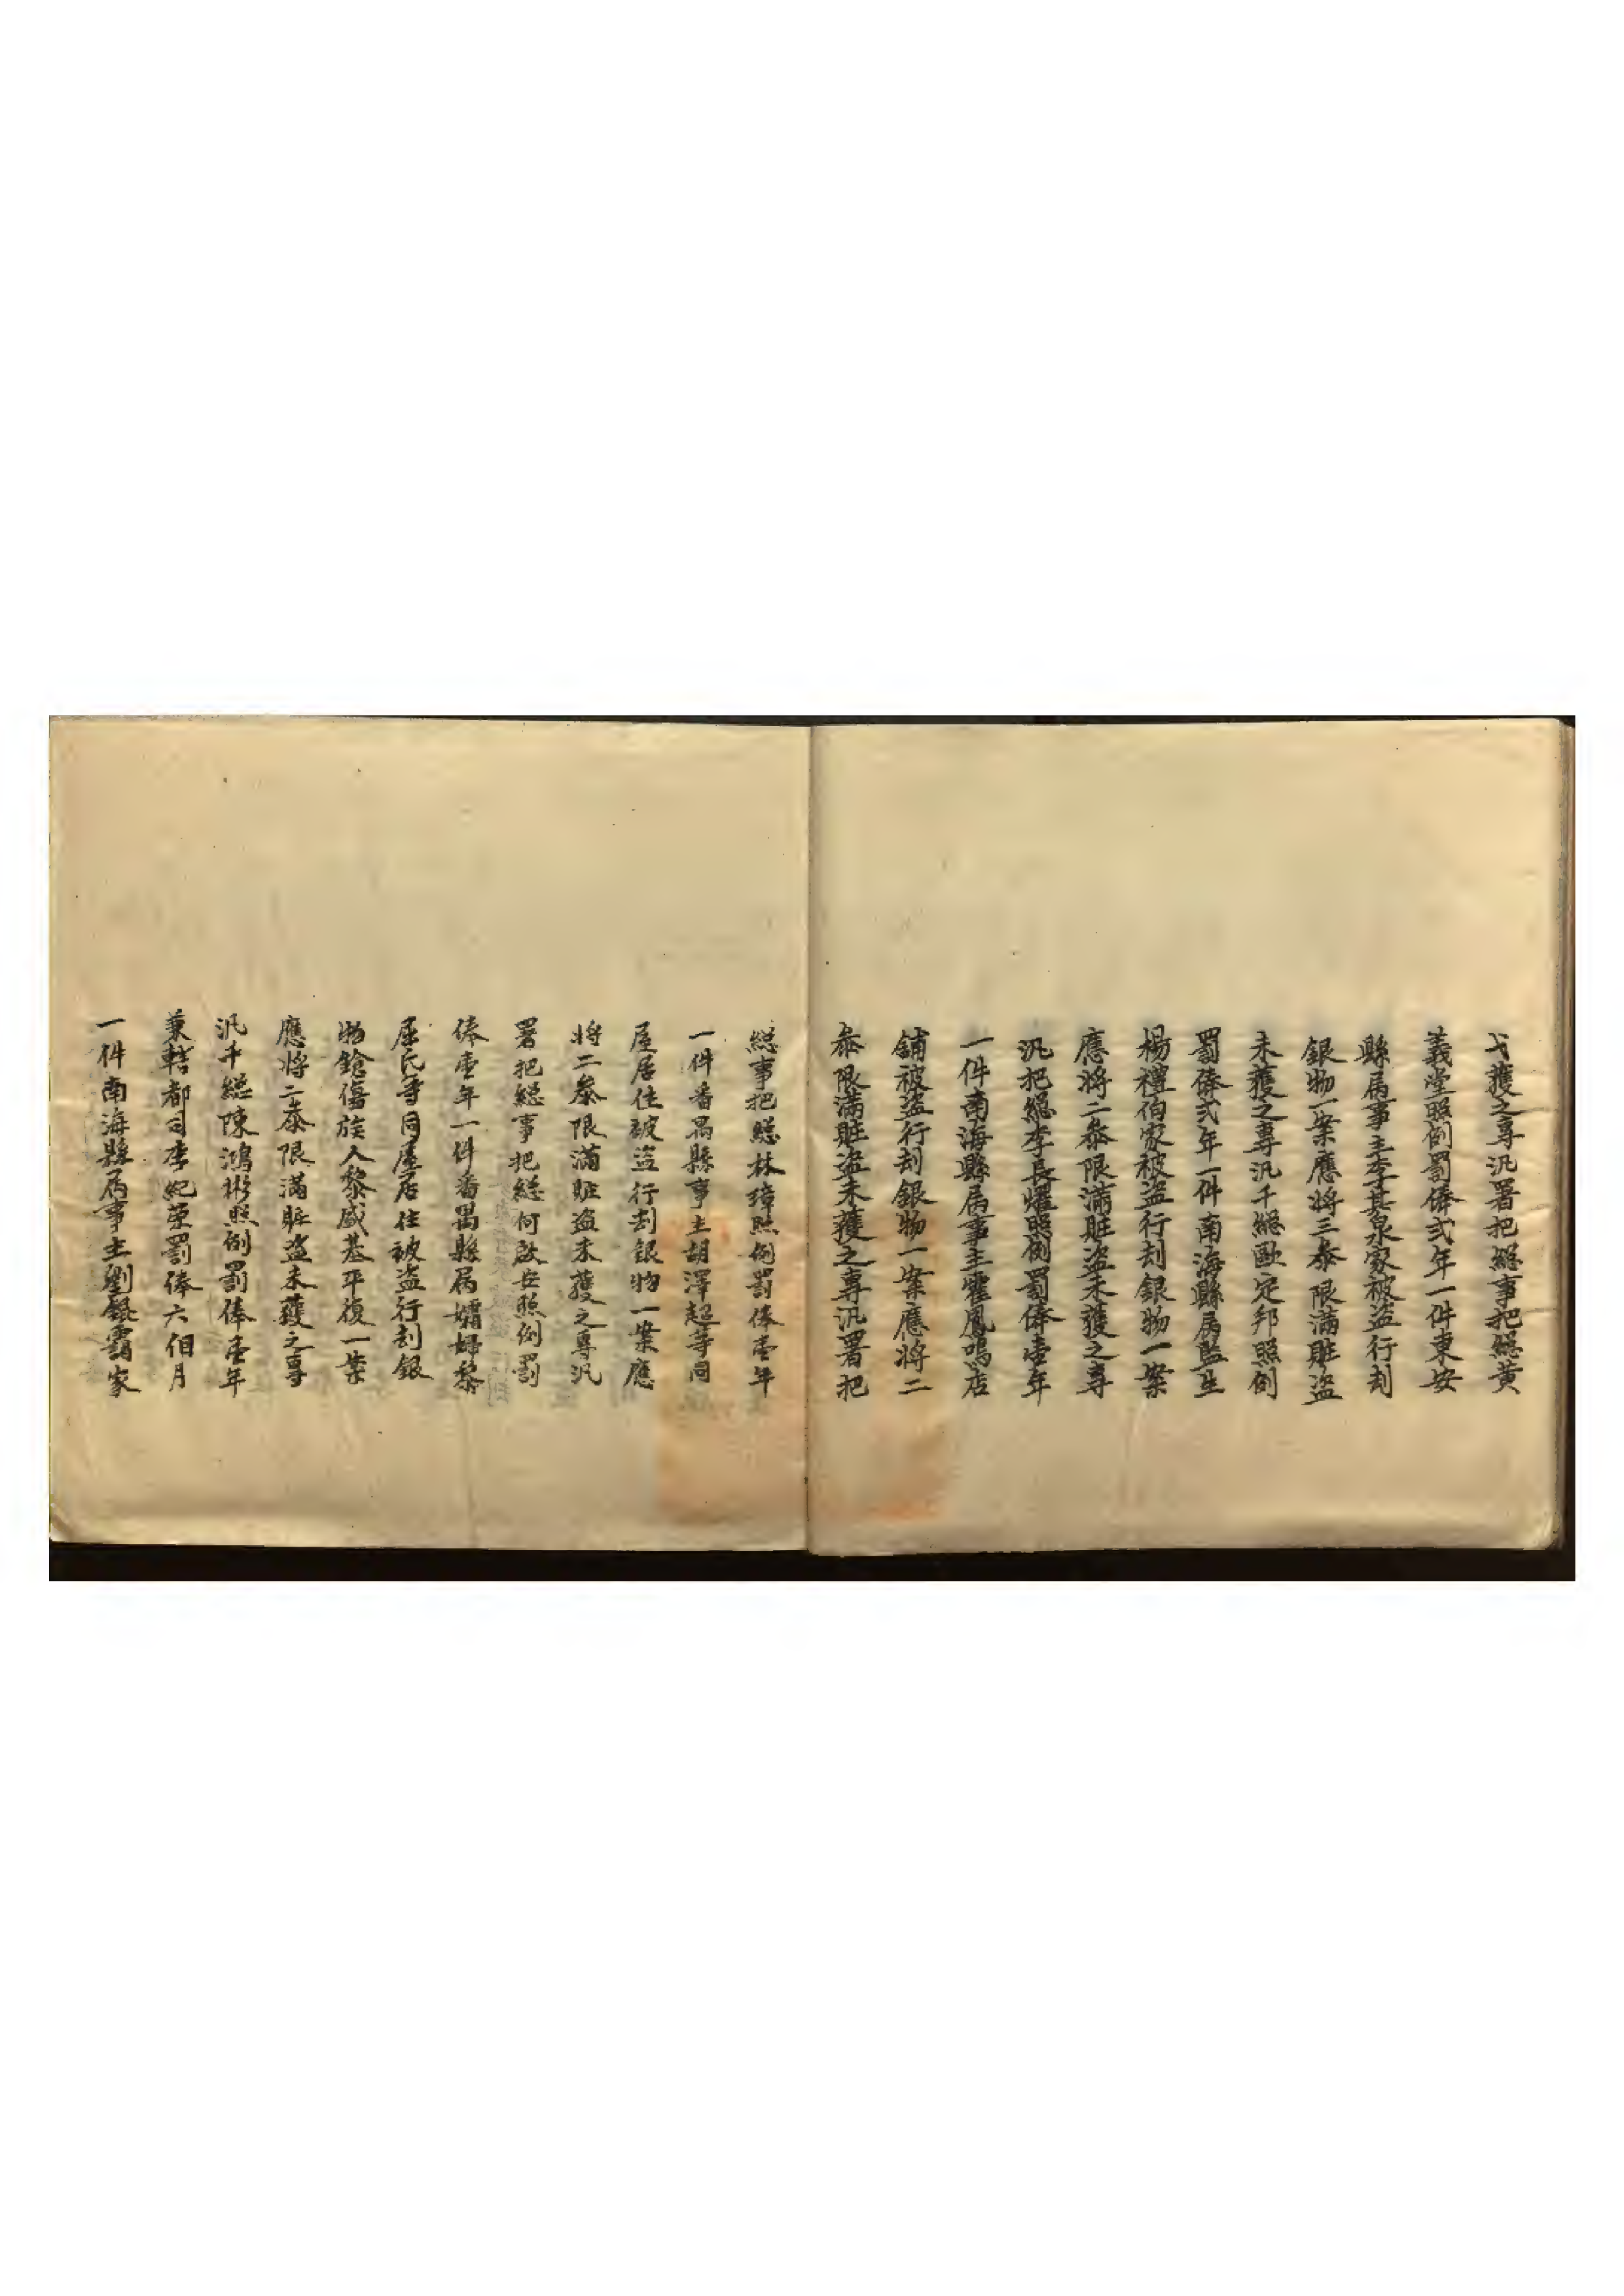 弋獲之專汛署把總事把總黃
義堂照例罰俸弍年一件東安
縣属事主李其泉家被盗行刦
銀物一案應將三叅限滿賍盗
未獲之專汛千總歐定邦照例
罰俸弍年一件南海縣属監生
楊禮伯家被盗行刦銀物一案
應將二叅限滿賍盗未獲之專
汛把總李長燿照例罰俸壹年
一件南海縣属事主霍鳳鳴店
舖被盗行刦銀物一案應將二
叅限滿賍盗未獲之專汛署把
総事把総林璋照例罰俸壹年
一件番禺縣事主胡澤超等同
屋居住被盗行刦銀物一案應
將二叅限滿賍盗未獲之專汛
署把総事把総何啟安照例罰
俸壹年一件番禺縣属孀婦黎
屈氏等同屋居住被盗行刦銀
物鎗傷族人黎盛基平復一案
應將二叅限滿賍盗未獲之專
汛千総陳鴻彬照例罰俸壹年
兼轄都司李妃榮罰俸六個月
一件南海縣属事主劉銀霸家